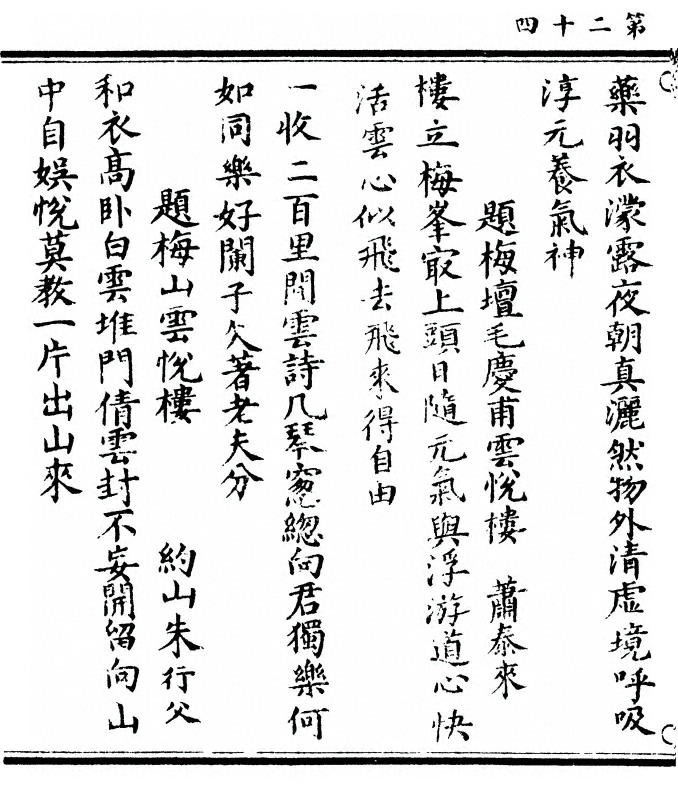 第二十四
藥羽衣濛露夜朝真灑然物外清虛境呼吸
淳元養氣神
題梅壇毛慶甫雲悅樓　蕭泰來
樓立梅峯㝡上頭日隨元氣與浮游道心快
活雲心似飛去飛來得自由
一收二百里間雲詩几琴窻緫向君獨樂何
如同樂好闌子攵著老夫分
題梅山雲悅樓　約山朱行父
和衣高卧白雲堆門倩雲封不妄開留向山
中自娛悅莫教一片出山來